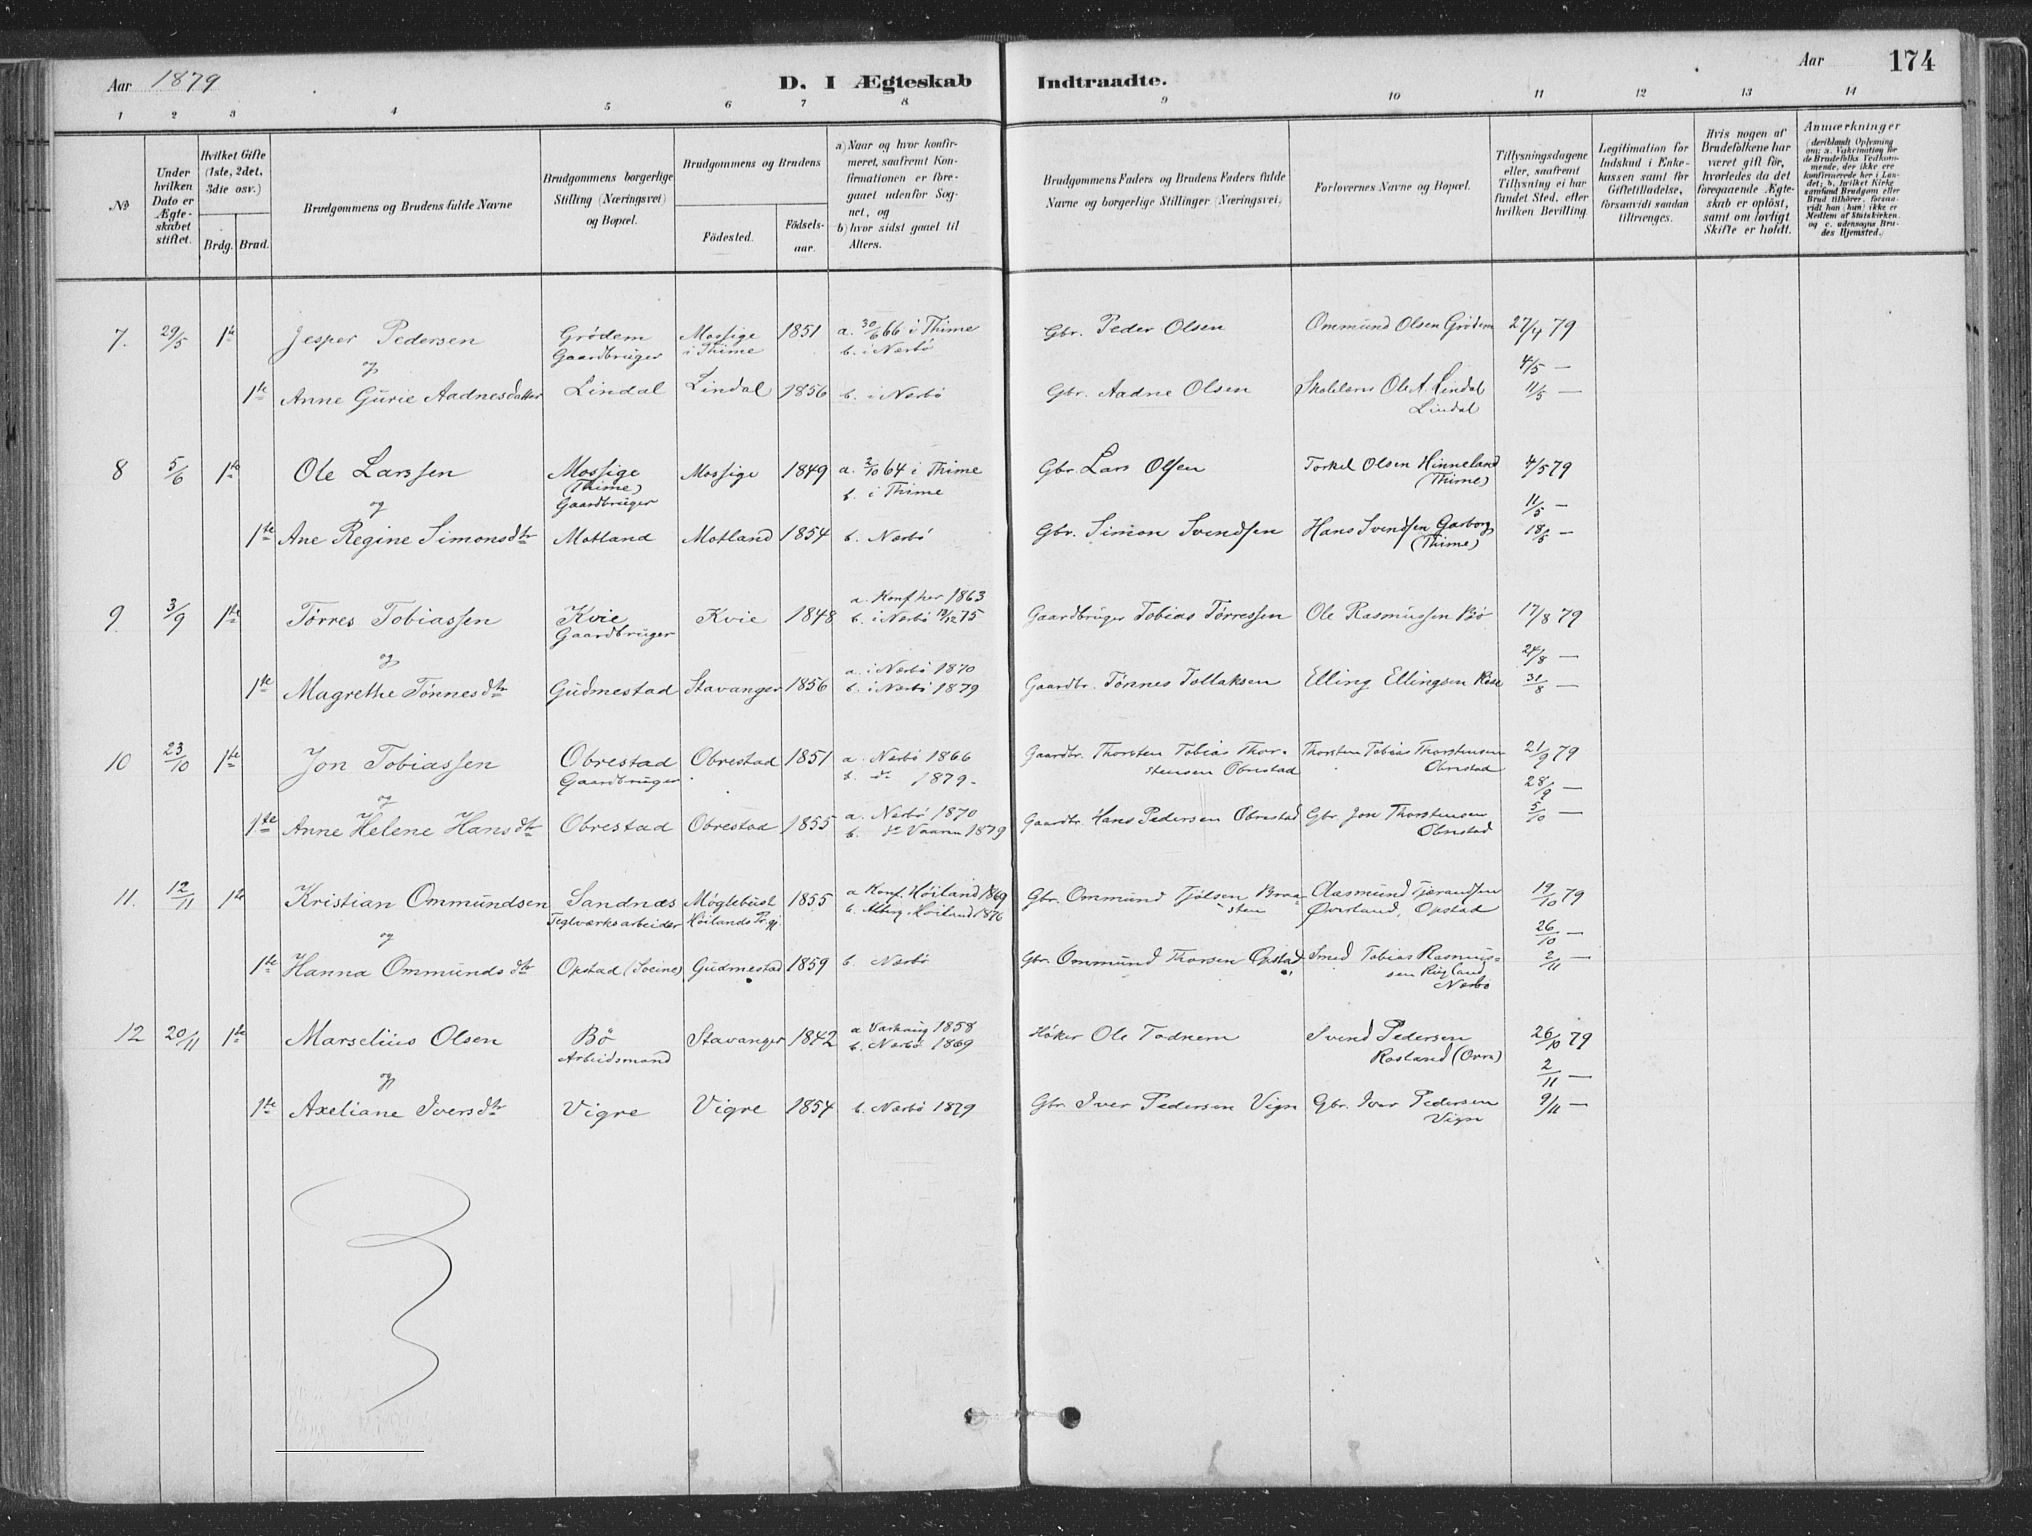 Aar 1879 D. I Ægteskab Indtraadte. Aar 174
1 2 3 4 5 6 7 8 9 10 11 12 13 14
No
Under hvilken Dato er Ægteskabet stiftet.
Hvilket Gifte (1ste, 2det, 3die osv.)
Brdg. Brud.
Brudgommens og Brudens fulde Navne
Brudgommens borgerlige Stilling (Næringsvei) og Bopæl.
Brudgommens og Brudens
Fødested. Fødselsaar.
a) Naar og hvor konfirmeret, saafremt Konfirmationen er foregaaet udenfor Sognet, og
b) hvor sidst gaaet til Alters.
Brudgommens Faders og Brudens Faders fulde Navne og borgerlige Stillinger (Næringsvei)
Forlovernes Navne og Bopæl.
Tillysningsdagene eller, saafremt Tillysning ei har fundet Sted, efter hvilken Bevilling.
Legitimation for Indskud i Enkekassen samt for Giftetilladelse, forsaavidt saadan tiltrænges.
Hvis nogen af Brudefolkene har været gift før, hvorledes da det foregaaende Ægteskab er opløst, samt om lovligt Skifte er holdt.
Anmærkninger (deriblandt Oplysning om: a. Vakcination for de Brudefolks Vedkommende, der ikke ere konfirmerede her i Landet; b. hvilket Kirkesamfund Brudgom eller Brud tilhører, forsaavidt han (hun) ikke er Medlem af Statskirken, og c. udensogns Brudes Hjemsted.)
7. 29/5 1ste Jesper Pedersen Grödem Mossige 1851 a. 30/6 66 i Thime Gbr. Peder Olsen Ommund Olsen Grödem 27/4 79
Gaardbruger i Thime b. i Nærbö
og 4/5 —
1ste Anne Gurie Aadnesdatter Lindal Lindal 1856 b. i Nærbö Gbr. Aadne Olsen Skolelærer Ole A. Lindal 11/5 —
Lindal
8 5/6 1ste Ole Larssen Mossige Mossige 1849 a. 2/10 64 i Thime Gbr. Lars Olsen Torkel Olsen Hinneland 4/5 79
(Thime) b. i Thime (Thime)
og Gaardbruger 11/5 —
1ste Ane Regine Simonsdtr Motland Motland 1854 b. Nærbö Gbr. Simon Svendsen Hans Svendsen Garborg 18/5 —
(Thime)
9. 3/9 1ste Törres Tobiassen Kvie Kvie 1848 a. Konf her 1863 Gaardbruger Tobias Törressen Ole Rasmussen Bö 17/8 79
Gaardbruger b. i Nærbö 12/12 75
og a. i Nærbö 1870 24/8 —
1ste Magrethe Tönnesdtr Gudmestad Stavanger 1856 b. i Nærbö 1879 Gaardbr. Tönnes Tollaksen Elling Ellingsen 31/8 —
10 23/10 1ste Jon Tobiassen Obrestad Obrestad 1851 a. Nærbö 1866 Gaardbr. Thorsten Tobias Thor- Thorsten Tobias Thorstensen 21/9 79
Gaardbruger b. do 1879 - stensen Obrestad Obrestad
og a. Nærbö 1870 28/9 —
1ste Anne Helene Hansdtr Obrestad Obrestad 1855 b. do Vaaren 1879 Gaardbr. Hans Pedersen Obrestad Gbr. Jon Thorstensen 5/10 —
Obrestad
11. 12/11 1ste Kristian Ommundsen Sandnæs Möglebust 1855 a Konf. Höiland 1869 Gbr. Ommund Tjölsen Braa- Aasmund Tjerandsen 19/10 79
Teglværksarbeider Höilands Prgj. b. Höiland 1876 sten Øverland, Opstad
og 26/10 —
1ste Hanna Ommundsdtr Opstad (Soeine) Gudmestad 1859 b. Nærbö Gbr. Ommund Thorsen Opstad Smed Tobias Rasmus- 2/11 —
sen Ringland
Nærbö
12 20/11 1ste Marselius Olsen Bö Stavanger 1842 a Varhaug 1858 Höker Ole Todnem Svend Pedersen 26/10 79
Arbeidsmand b. Nærbö 1869 Rosland (Ovra)
og 2/11 —
1ste Axeliane Iversdtr Vigre Vigre 1854 b. Nærbö 1879 Gbr. Iver Pedersen Vigre Gbr. Iver Pedersen 9/11 —
Vigre